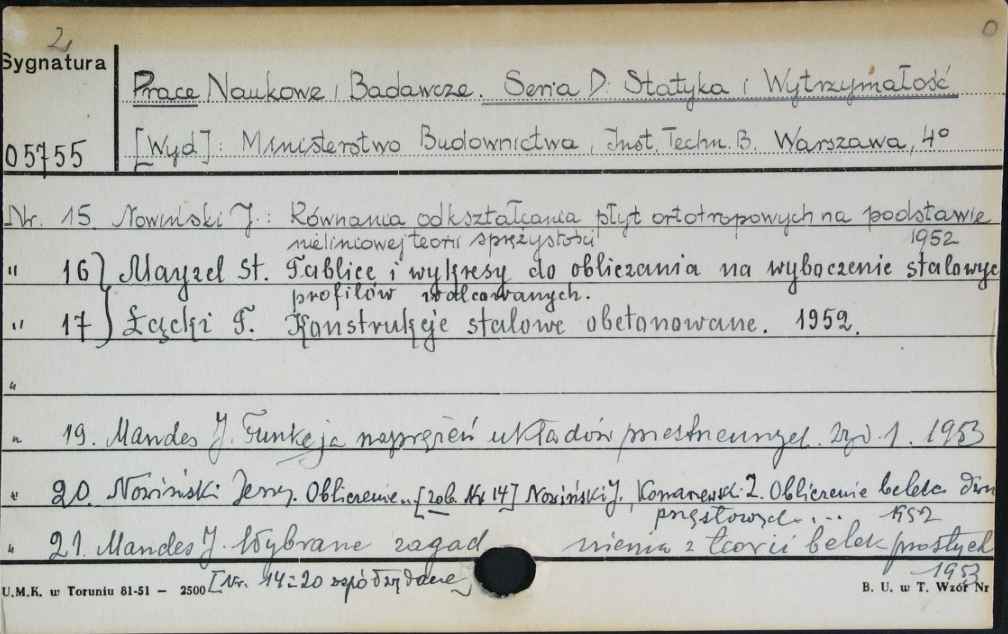 2 0
Sygnatura
Prace Naukowe i Badawcze. Seria D: Statyka i Wytrzymałość
05755 [Wyd]: Ministerstwo Budownictwa, Inst. Techn. B. Warszawa, 4°
Nr. 15. Nowiński J.: Równania odkształcania płyt ortotropowych na podstawie
nieliniowej teorii sprężystości 1952
" 16) Mayzel St. Tablice i wykresy do obliczania na wyboczenie stalowyc
profilów walcowanych.
" 17) Łącki F. Konstrukcje stalowe obetonowane. 1952.
"
" 19. Mandes J. Funkcja naprężeń układów przestrzennych. 1. 1953
" 20. Nowiński Jerzy. Obliczenie.. [zob. Nr 14] Nowiński J, Obliczenie belek dwu
przęsłowych... 1952
" 21. Mandes J. Wybrane zagad nienia z teorii belek prostych
1953
[Nr. 14 = 20 współwydane]
U.M.K. w Toruniu 81-51 – 2500 B. U. w T. Wzór Nr